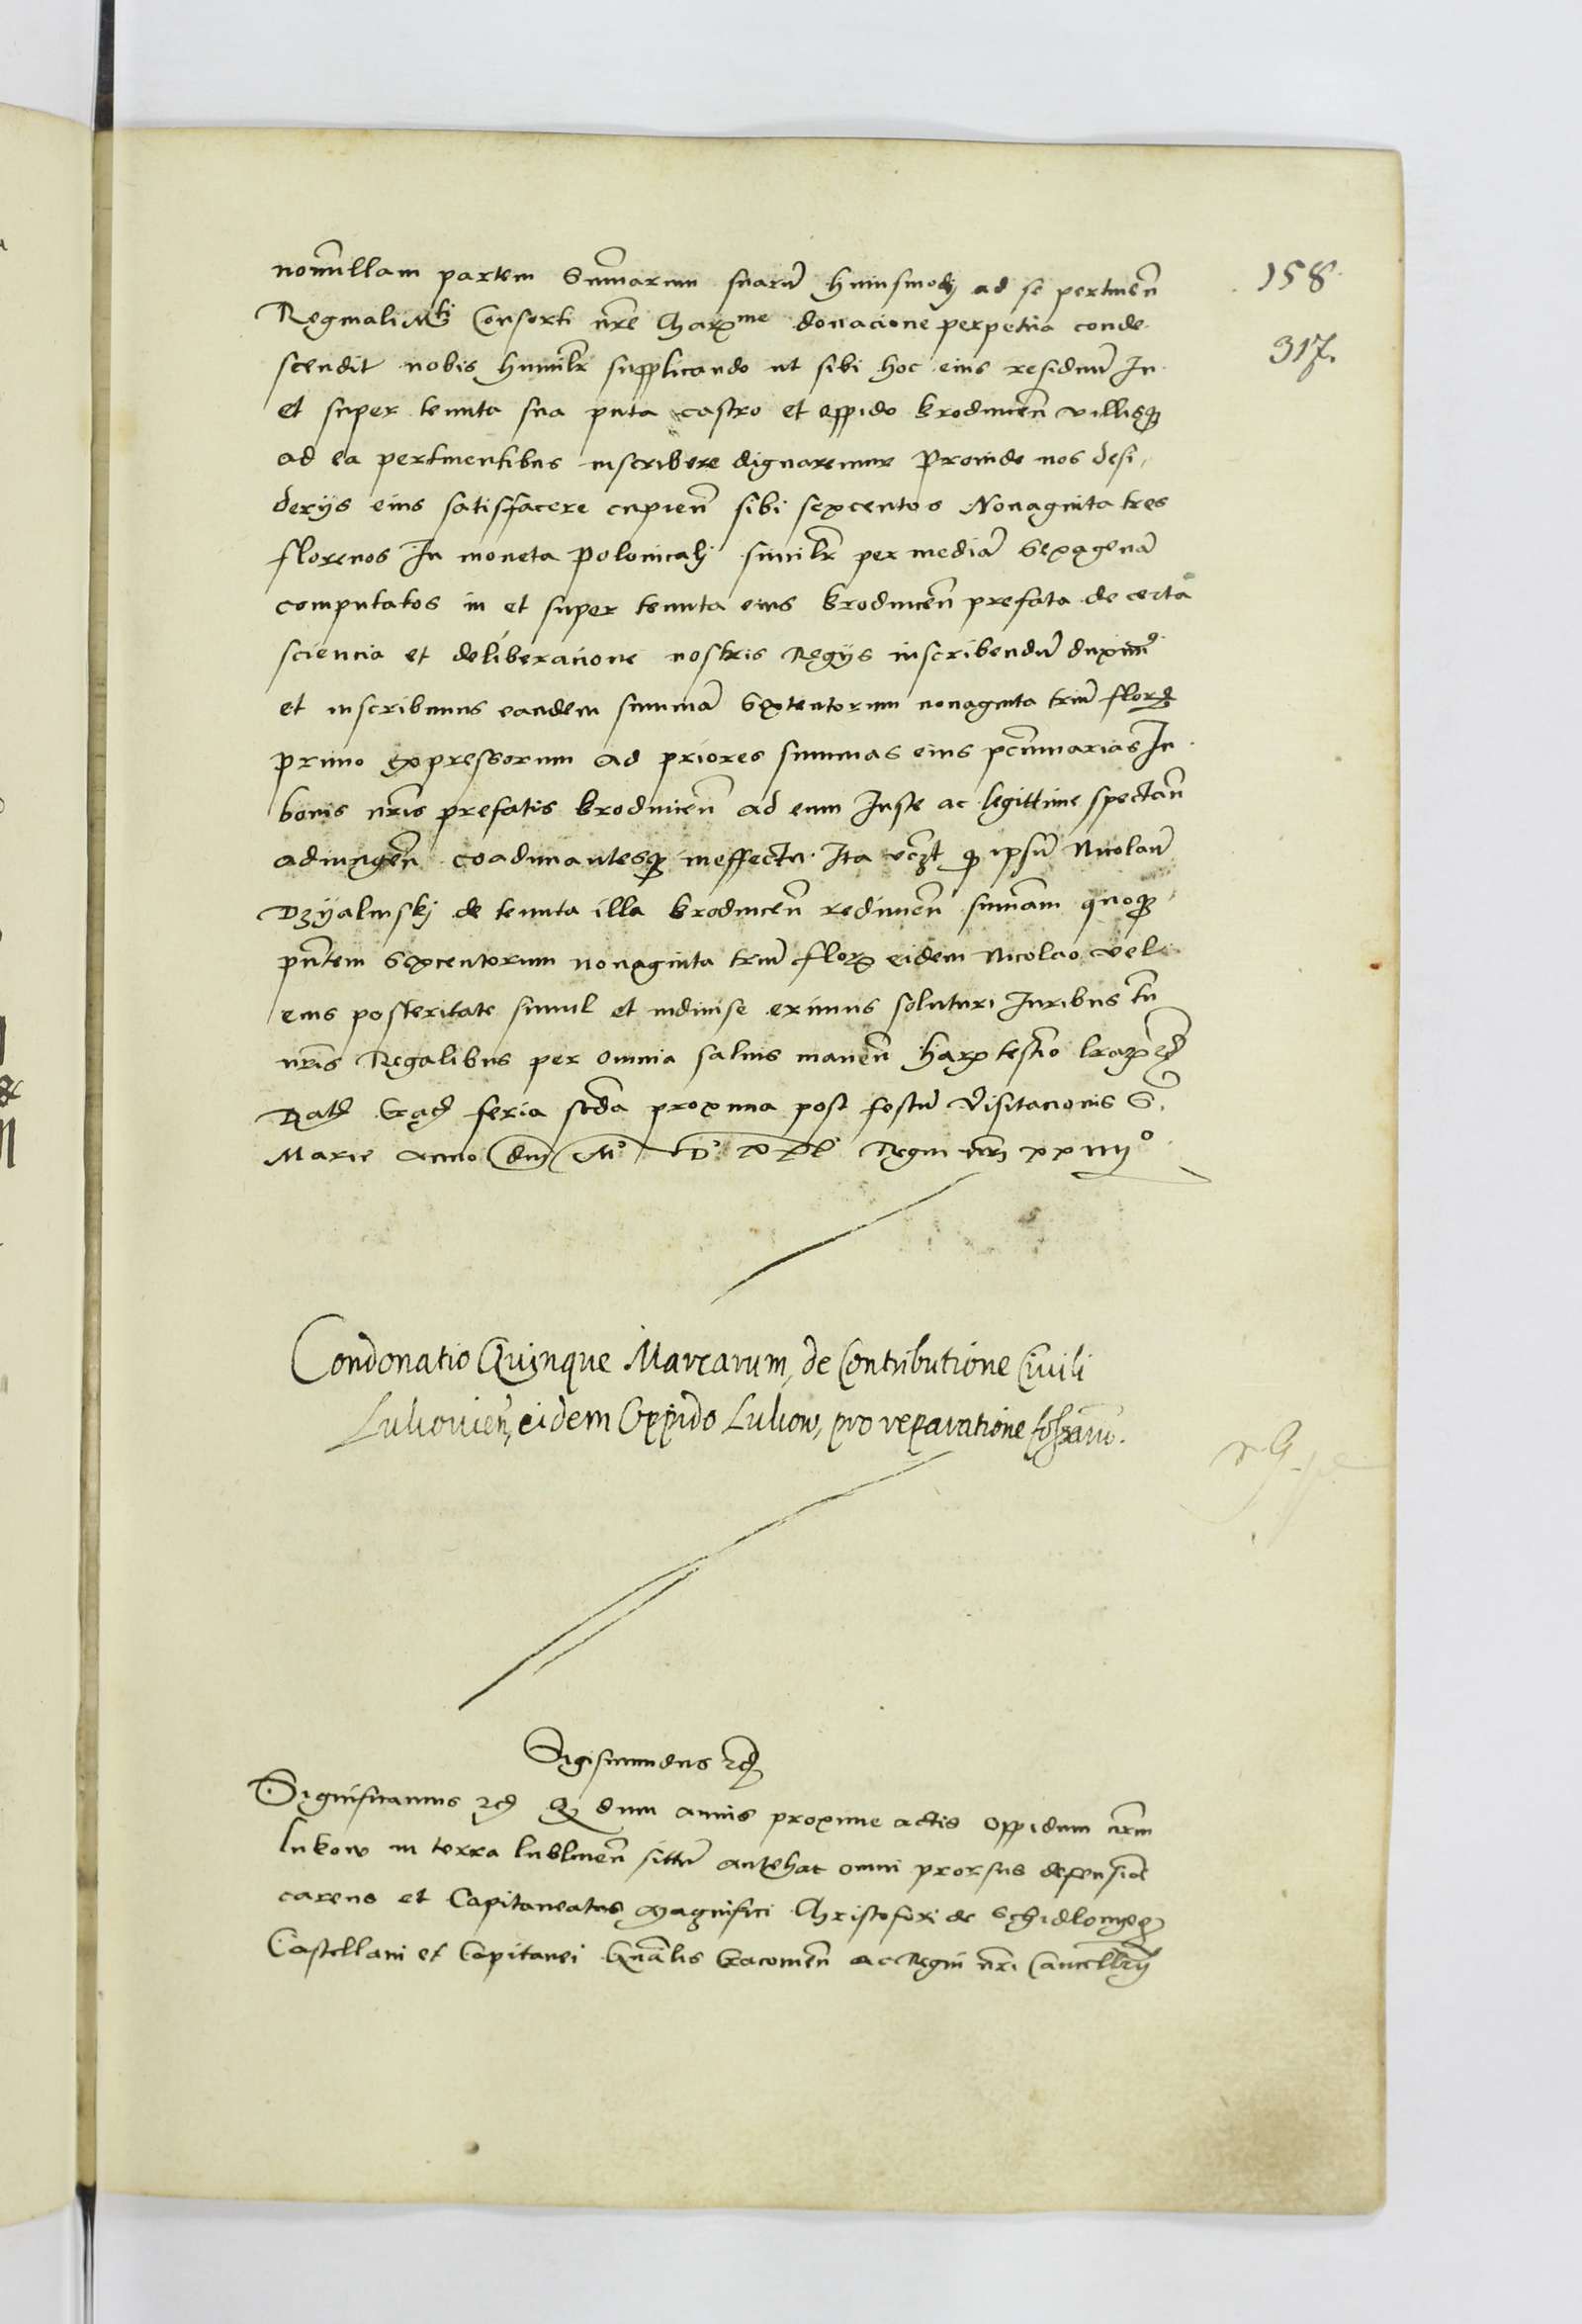 nonnullam partem Summarum suarũ huiusmodj ad se pertineñ
158
Reginali Mti Consorti nr̃e Charxme donacione perpetua conde
scendit nobis humilr̃ supplicando ut sibi hoc eius residuũ In
317.
et super tenuta sua puta castro et oppido brodniceñ villisqꝫ
ad ea pertinentibus inscribere dignaremur Proinde nos desi
derijs eius satisfacere cupieñ sibi sexcentos Nonaginta tres
florenos In moneta polonicalj similr̃ per mediã Sexagenã
computatos in et super tenuta eius brodniceñ prefata de certa
sciencia et deliberacione nostris Regijs inscribendũ duximꝰ
et inscribimus eandem summã Sexcentorum nonaginta triũ florꝝ
primo expressorum ad priores summas eius pecũniarias In
bonis nr̃is prefatis brodnicen̄ ad eum Juste ac legittime spectañ
adiungeñ coadunantesqꝫ in effectu Ita vcz̃t qꝫ ipsũ Nicolaũ
Dzijalinskj de tenuta illa brodniceñ redimeñ sum̃am quoqꝫ
pñtem Sexcentorum nonaginta triũ florꝝ eidem Nicolao vel
eius posteritate simul et indiuise erimus soluturi Juribus tñ
nr̃is Regalibus per omnia saluis maneñ harꝝ testĩo lraꝝ ꝛc̃
Dat̃ Crac̃ feria scd̃a proxima post festũ Visitacionis S.
Marie Anno dnj Mº Dº XXXº Regni nr̃j xxiiijº
Condonatio Quinque Marcarum, de Contributione Ciuili
Lukouieñ, eidem Oppido Lukow, pro reparatione fossarũ.
Sigismundus ꝛc̃
Significamus ꝛc̃ Qꝫ dum annis proxime actis oppidum nr̃m
lukow in terra lublineñ sittũ antehac omni prorsus defensiõe
carens et Capitaneatus Magnifici Christoferi de Schidlowyecz
Castellani et Capitanei Gñalis Cracouieñ ac Regni nr̃i Cancellarij